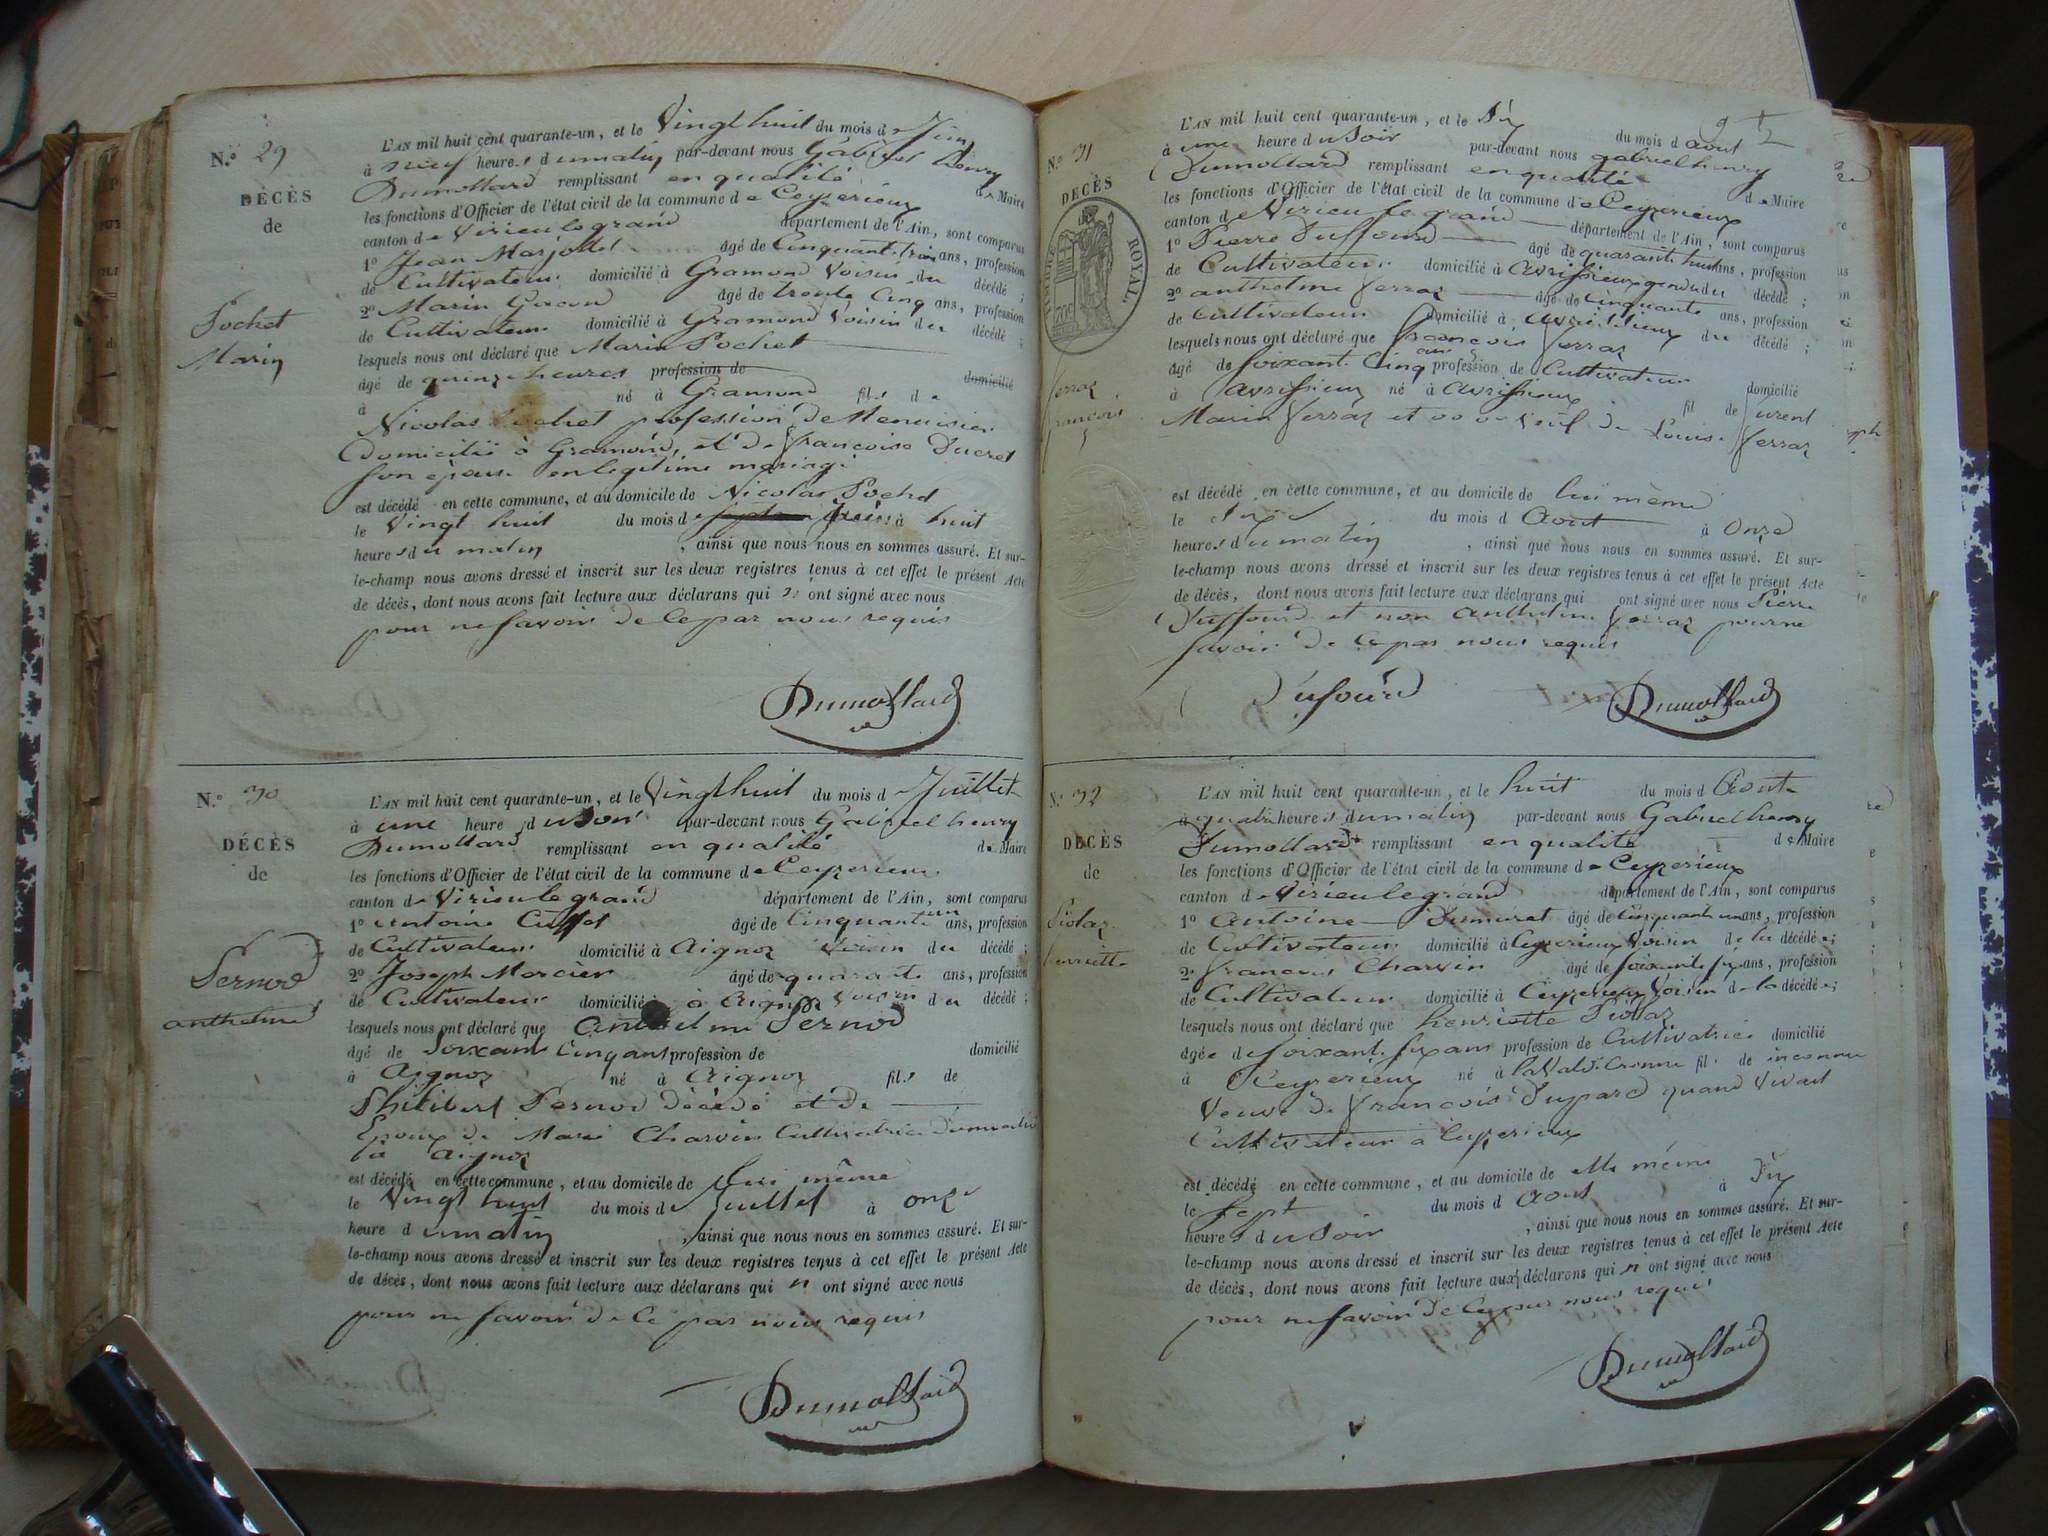 N.º 29
DÉCÈS
de
Pochet
Marin
L'AN mil huit cent quarante-un, et le Vingt huit du mois de Juin
à neuf heures du matin par-devant nous Gabriel henry
Dumollard remplissant en qualité de Maire
les fonctions d'Officier de l'état civil de la commune de Ceyzerieux
canton de Virieu le grand département de l'Ain, sont comparus
1º Jean Marjollet âgé de Cinquante trois ans, profession
de Cultivateur domicilié à Gramond Voisin du décédé ;
2º Marin Gacon âgé de trente Cinq ans, profession
de Cultivateur domicilié à Gramond Voisin du décédé ;
lesquels nous ont déclaré que Marin Pochet
âgé de quinze heures profession de domicilié
à né à Gramond fils de
Nicolas Pochet profession de Menuisier
Domicilié à Gramond, et de françoise Ducret
son épouse en legitime mariage
est décédé en cette commune, et au domicile de Nicolas Pochet
le Vingt huit du mois de juin à huit
heures du matin , ainsi que nous nous en sommes assuré. Et sur-
le-champ nous avons dressé et inscrit sur les deux registres tenus à cet effet le présent Acte
de décès, dont nous avons fait lecture aux déclarans qui n ont signé avec nous
pour ne savoir de Ce par nous requis
Dumollard
N.º 30
DÉCÈS
de
Pernod
anthelme
L'AN mil huit cent quarante-un, et le Vingt huit du mois de Juillet
à une heure du Soir par-devant nous Gabriel henry
Dumollard remplissant en qualité de Maire
les fonctions d'Officier de l'état civil de la commune de Ceyzerieux
canton de Virieu le grand département de l'Ain, sont comparus
1º antoine Cusset âgé de Cinquante un ans, profession
de Cultivateur domicilié à Aignoz Voisin du décédé ;
2º Joseph Mercier âgé de quarante ans, profession
de Cultivateur domicilié à Aignoz Voisin du décédé ;
lesquels nous ont déclaré que Anthelme Pernod
âgé de Soixante Cinq ans profession de domicilié
à Aignoz né à Aignoz fils de
Philibert Pernod décédé et de
Epoux de Marie Charvin Cultivatrice
à Aignoz
est décédé en cette commune, et au domicile de lui même
le Vingt huit du mois de Juillet à onze
heure du matin , ainsi que nous nous en sommes assuré. Et sur-
le-champ nous avons dressé et inscrit sur les deux registres tenus à cet effet le présent Acte
de décès, dont nous avons fait lecture aux déclarans qui n ont signé avec nous
pour ne savoir de Ce par nous requis
Dumollard
N.º 31
DÉCÈS
TIMBRE ROYAL.
70c
ferraz
françois
L'AN mil huit cent quarante-un, et le Dix du mois d aout
à une heure du Soir par-devant nous gabriel henry
Dumollard remplissant en qualité de Maire
les fonctions d'Officier de l'état civil de la commune de Ceyzerieux
canton de Virieu le grand département de l'Ain, sont comparus
1º Pierre Duffourd âgé de quarante huit ans, profession
de Cultivateur domicilié à avrissieux gendre du décédé ;
2º anthelme ferraz âgé de Cinquante ans, profession
de Cultivateur domicilié à avrissieux du décédé ;
lesquels nous ont déclaré que françois ferraz
âgé de soixante Cinq ans profession de Cultivateur domicilié
à avrissieux né à avrissieux fil de
Marin ferraz et Veuf de Louise
est décédé en cette commune, et au domicile de lui même
le Dix du mois d Aout à Onze
heures du matin , ainsi que nous nous en sommes assuré. Et sur-
le-champ nous avons dressé et inscrit sur les deux registres tenus à cet effet le présent Acte
de décès, dont nous avons fait lecture aux déclarans qui ont signé avec nous Pierre
Duffourd et non anthelme ferraz pour ne
savoir de Ce par nous requis
Dufourd Dumollard
N.º 32
DÉCÈS
de
Piolaz
henriette
L'AN mil huit cent quarante-un, et le huit du mois d Aout
à quatre heures du matin par-devant nous Gabriel henry
Dumollard remplissant en qualité de Maire
les fonctions d'Officier de l'état civil de la commune de Ceyzerieux
canton de Virieu le grand département de l'Ain, sont comparus
1º Antoine Dumuret âgé de Cinquante un ans, profession
de Cultivateur domicilié à Ceyzerieux Voisin de la décédée ;
2º françois Charvin âgé de soixante six ans, profession
de Cultivateur domicilié à Ceyzerieux Voisin de la décédée ;
lesquels nous ont déclaré que henriette Piolaz
âgée de soixante six ans profession de Cultivatrice domicilié
à Ceyzerieux né à fil de inconnu
Veuve de françois Dupard quand Vivait
Cultivateur à Ceyzerieux
est décédé en cette commune, et au domicile de elle même
le sept du mois d aout à Dix
heures du Soir , ainsi que nous nous en sommes assuré. Et sur-
le-champ nous avons dressé et inscrit sur les deux registres tenus à cet effet le présent Acte
de décès, dont nous avons fait lecture aux déclarans qui n ont signé avec nous
pour ne savoir de Ce par nous requis
Dumollard